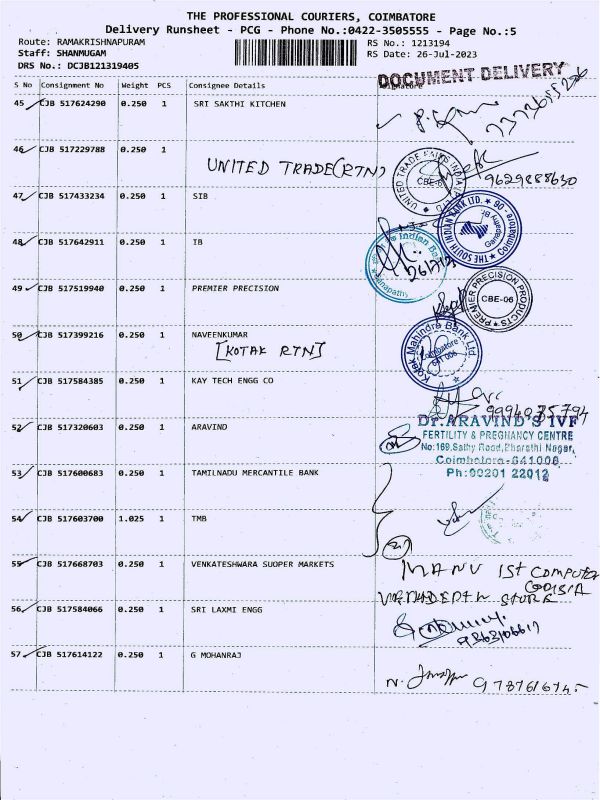 THE PROFESSIONAL COURIERS, COIMBATORE
Delivery Runsheet - PCG - Phone No.:0422-3505555 - Page No.:5
Route: RAMAKRISHNAPURAM RS No.: 1213194
Staff: SHANMUGAM RS Date: 26-Jul-2023
DRS No.: DCJB121319405
DOCUMENT DELIVERY
S No Consignment No Weight PCS Consignee Details Signature
45 CJB 517624290 0.250 1 SRI SAKTHI KITCHEN
46 CJB 517229788 0.250 1
UNITED TRADE(RTN)
UNITED TRADE LINKS INDIA
CBE-6
9629888630
47 CJB 517433234 0.250 1 SIB
THE SOUTH INDIAN BANK LTD.
Ganapathy Br.
Coimbatore - 06
48 CJB 517642911 0.250 1 IB
Indian Bank
Ganapathy
49 CJB 517519940 0.250 1 PREMIER PRECISION
PREMIER PRECISION PRODUCTS
CBE-06
50 CJB 517399216 0.250 1 NAVEENKUMAR
[KOTAK RTN]
Kotak Mahindra Bank Ltd.
Coimbatore
641 006
51 CJB 517584385 0.250 1 KAY TECH ENGG CO
9994035794
52 CJB 517320603 0.250 1 ARAVIND
Dr.ARAVIND'S IVF
FERTILITY & PREGNANCY CENTRE
No:169,Sathy Road,Bharathi Nagar,
Coimbatore-641006
Ph:90201 22012
53 CJB 517600683 0.250 1 TAMILNADU MERCANTILE BANK
54 CJB 517603700 1.025 1 TMB
55 CJB 517668703 0.250 1 VENKATESHWARA SUOPER MARKETS
MANU IST COMPUTER
STORE
56 CJB 517584066 0.250 1 SRI LAXMI ENGG
57 CJB 517614122 0.250 1 G MOHANRAJ